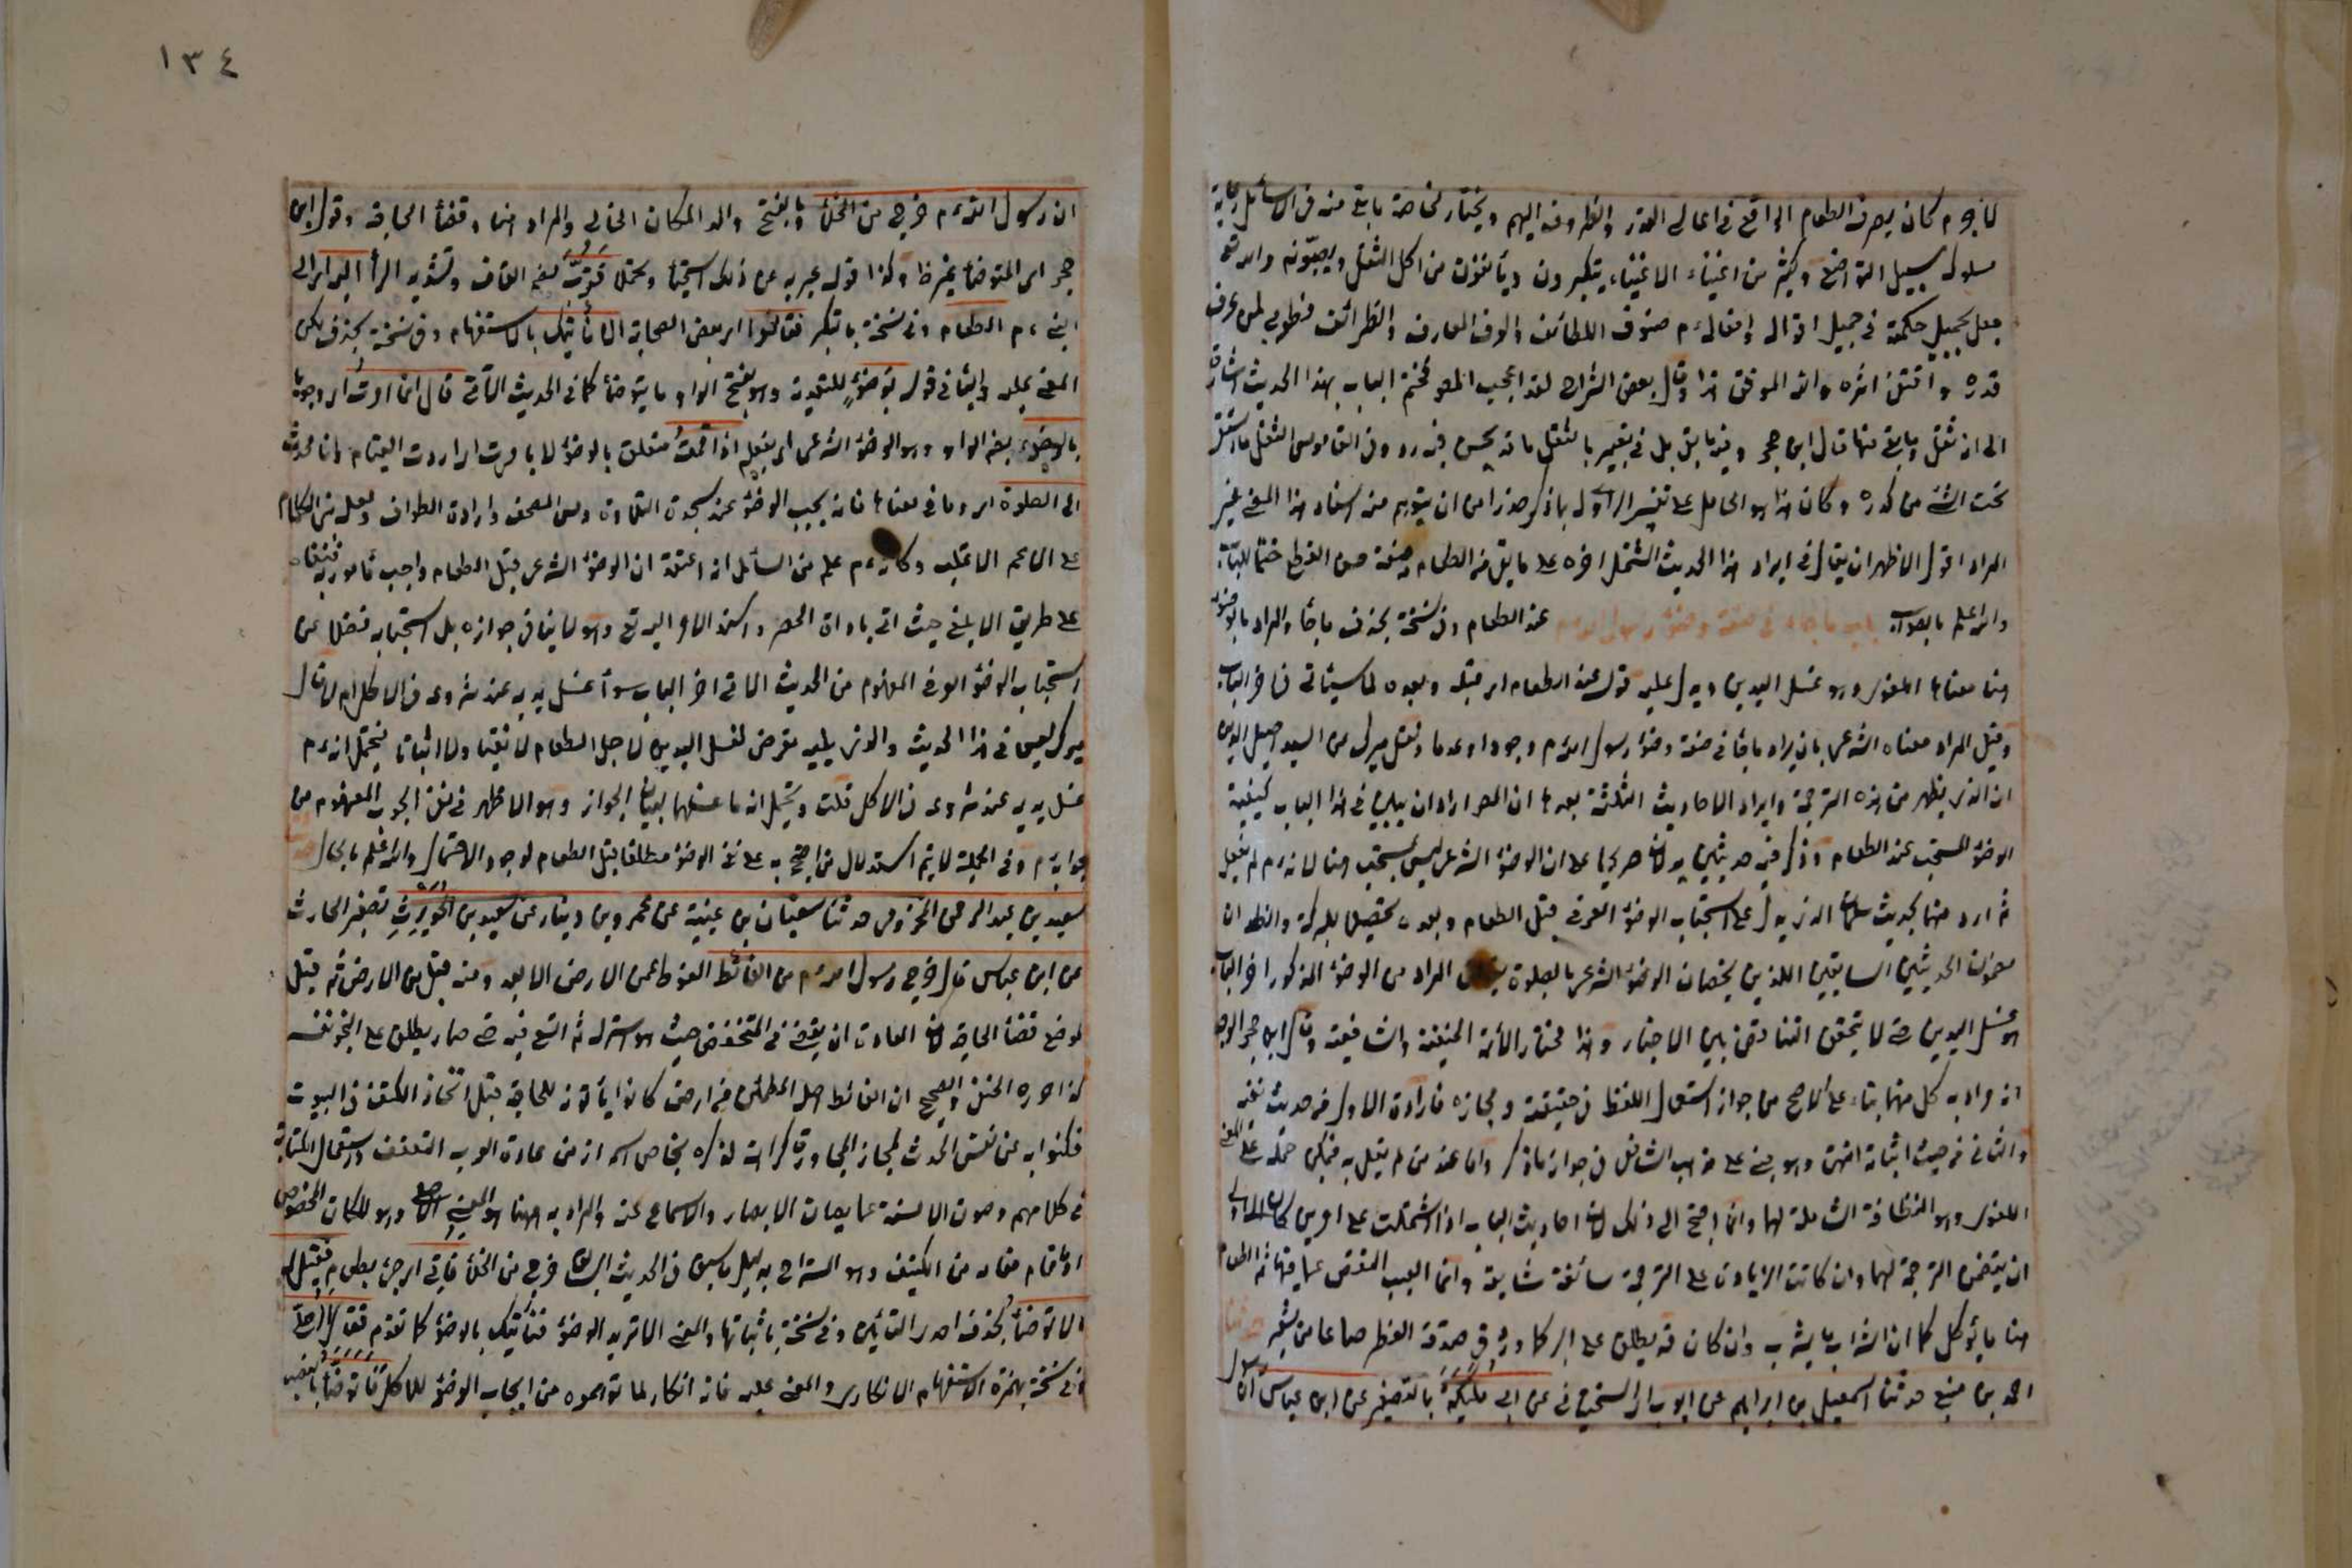 كان يصرف الطعام الواقع في اعالي القدر والظروف اليهم ويختار لخاصة ما بقي منه في الاسافل رعاية
سلوك سبيل التواضع وكثير من اغنياء الاغبياء يتكبرون ويأنفون من اكل الثفل ويصبونه والله تع
جعل بجميل حكمة في جميل اقواله وافعاله م صنوف اللطائف والوف المعارف والظرائف فطوبى لمن عرف
قدره واقتفى اثره والله الموفق هذا وقال بعض الشراح لقد اعجب المص ختم الباب بهذا الحديث اشارة
الى انه ثفل وما بقي منها قال ابن حجر وفيه ما فيه بل في تعبير بالثفل ما قد يحس فيه رد وفي القاموس الثفل ما استقر
تحت الشئ من كدره وكان هذا هو الحامل على تفسير الراوي له بما ذكر حذرا من ان يتوهم منه استفاد هذا المعنى غير
المراد اقول الاظهر ان يقال في ايراد هذا الحديث المشتمل اخره على ما بقي من الطعام صنعة حسن المقطع ختما للباب
والله اعلم بالصواب باب ما جاء في صفة وضوء رسول الله م عند الطعام وفي نسخة بحذف ما جاء والمراد بالوضوء
هنا معناه اللغوي وهو غسل اليدين ويدل عليه قوله عند الطعام اي قبله وبعده لما سيأتي في اخر الباب
وقيل المراد معناه الشرعي بان يراد ما جاء في صفة وضوء رسول الله م وجودا وعدما ونقل ميرك عن السيد اصيل الدين
ان الذي يظهر من هذه الترجمة وايراد الاحاديث الثلثة بعدها ان المص اراد ان يبين في هذا الباب كيفية
الوضوء المستحب عند الطعام وذكر فيه حديثين يدلان صريحا على ان الوضوء الشرعي ليس بمستحب هنا لانه م لم يفعل
ثم اردفهما بحديث سلمان الذي يدل على استحباب الوضوء العرفي قبل الطعام وبعده تحصيلا للبركة والظاهر ان
مفهوم الحديثين السابقين اللذين يخصان الوضوء الشرعي بالصلوة المراد من الوضوء المذكور اخر الباب
هو غسل اليدين حتى لا يتحقق التناقض بين الاخبار وهذا مختار الأئمة الحنفية والشافعية وقال ابن حجر الوجه
انه اراد به كل منهما بناء على الاصح من جواز استعمال اللفظ في حقيقته ومجازه فارادة الاول من حديث نفيه
والثاني من حيث اثباته انتهى وهو مبني على مذهب الشافعي في جواز ما ذكر واما عند من لم يقل به فيمكن حمله على المعنى
اللغوي وهو النظافة الشاملة لهما وانما احتج الى ذلك لان احاديث الباب اذا اشتملت على امرين كان الاولى
ان يتضمن الترجمة لهما وان كانت الزيادة على الترجمة سائغة شايعة وانما العيب النقص عما فيها ثم الطعام
هنا ما يؤكل كما ان الشراب ما يشرب وان كان قد يطلق على البر كما ورد في صدقة الفطر صاعا من شعير
احمد بن منيع حدثنا اسمعيل بن ابراهيم عن ايوب اي السختياني عن ابي مليكة بالتصغير عن ابن عباس ان
١٣٤
ان رسول الله م خرج من الخلاء بالفتح والمد المكان الخالي والمراد هنا قضاء الحاجة وقول ابن
ابني م الطعام وفي نسخة بالتنكير فقالوا اي بعض الصحابة الا نأتيك بالاستفهام وفي نسخة بحذف
المعنى عليه والباء في قوله بوضوء للتعدية وهو بفتح الواو ما يتوضأ كما في الحديث الآتي قال انما امرت اي وجوبا
بالوضوء بضم الواو وهو الوضوء الشرعي اي بفعله اذا قمت متعلق بالوضوء لا بامرت اي اردت القيام وانا محدث
الى الصلوة اي وما في معناها فانه يجب الوضوء عند سجدة التلاوة ومس المصحف وارادة الطواف ولعله بنى الكلام
على الاعم الاغلب وكأنه م علم من السائل انه اعتقد ان الوضوء الشرعي قبل الطعام واجب مأمور به فنفاه
على طريق الابلغ حيث اتى باداة الحصر واسند الامر اليه تع وهو لا ينافي جوازه بل استحبابه فضلا عن
استحباب الوضوء العرفي المفهوم من الحديث الاتي اخر الباب سواء غسل يديه عند شروعه في الاكل ام لا قال
ميرك ليس في هذا الحديث والذي يليه تعرض لغسل اليدين لاجل الطعام لا نفيا ولا اثباتا فيحتمل انه م
غسل يديه عند شروعه في الاكل قلت ويحتمل انه ما غسلهما لبيان الجواز وهو الاظهر في نفي الوجوب المفهوم من
جوابه م وفي الجملة لا يتم استدلال من احتج به على نفي الوضوء مطلقا قبل الطعام لوجود الاحتمال والله اعلم بالحال
سعيد بن عبد الرحمن المخزومي حدثنا سفيان بن عيينة عن عمرو بن دينار عن سعيد بن الحويرث تصغير الحارث
عن ابن عباس قال خرج رسول الله م من الغائط الغوط عمق الارض الابعد ومنه قيل للمطمئن من الارض ثم قيل
لموضع قضاء الحاجة لان العادة ان يقضي في المنخفض حيث هو استر له ثم اتسع فيه حتى صار يطلق على النجو نفسه
كذا حرره الحنفي والصحيح ان الغائط اصله المطمئن من ارض كانوا يأتونه للحاجة قبل اتخاذ الكنف في البيوت
فكنوا به عن نفس الحدث لمجاز المجاورة كراهة لذكره بخاص اسمه اذ من عادة العرب التعفف واستعمال الكناية
في كلامهم وصون الالسنة عما يصان الابصار والاسماع عنه والمراد به ههنا هو المعنى الاصلي وهو المكان المخصوص
او ما قام مقامه من الكنيف وهو المستراح بدليل ما سبق في الحديث السابق خرج من الخلاء فاتي اي جئ بطعام فقيل له
الا توضأ بحذف احدى التائين وفي نسخة باثباتها والمعنى الا تريد الوضوء فنأتيك بالوضوء كما تقدم فقال أاصلي
وفي نسخة بهمزة الاستفهام الانكاري والمعنى عليه فانه انكار لما توهموه من ايجاب الوضوء للاكل فاتوضأ بالنصب